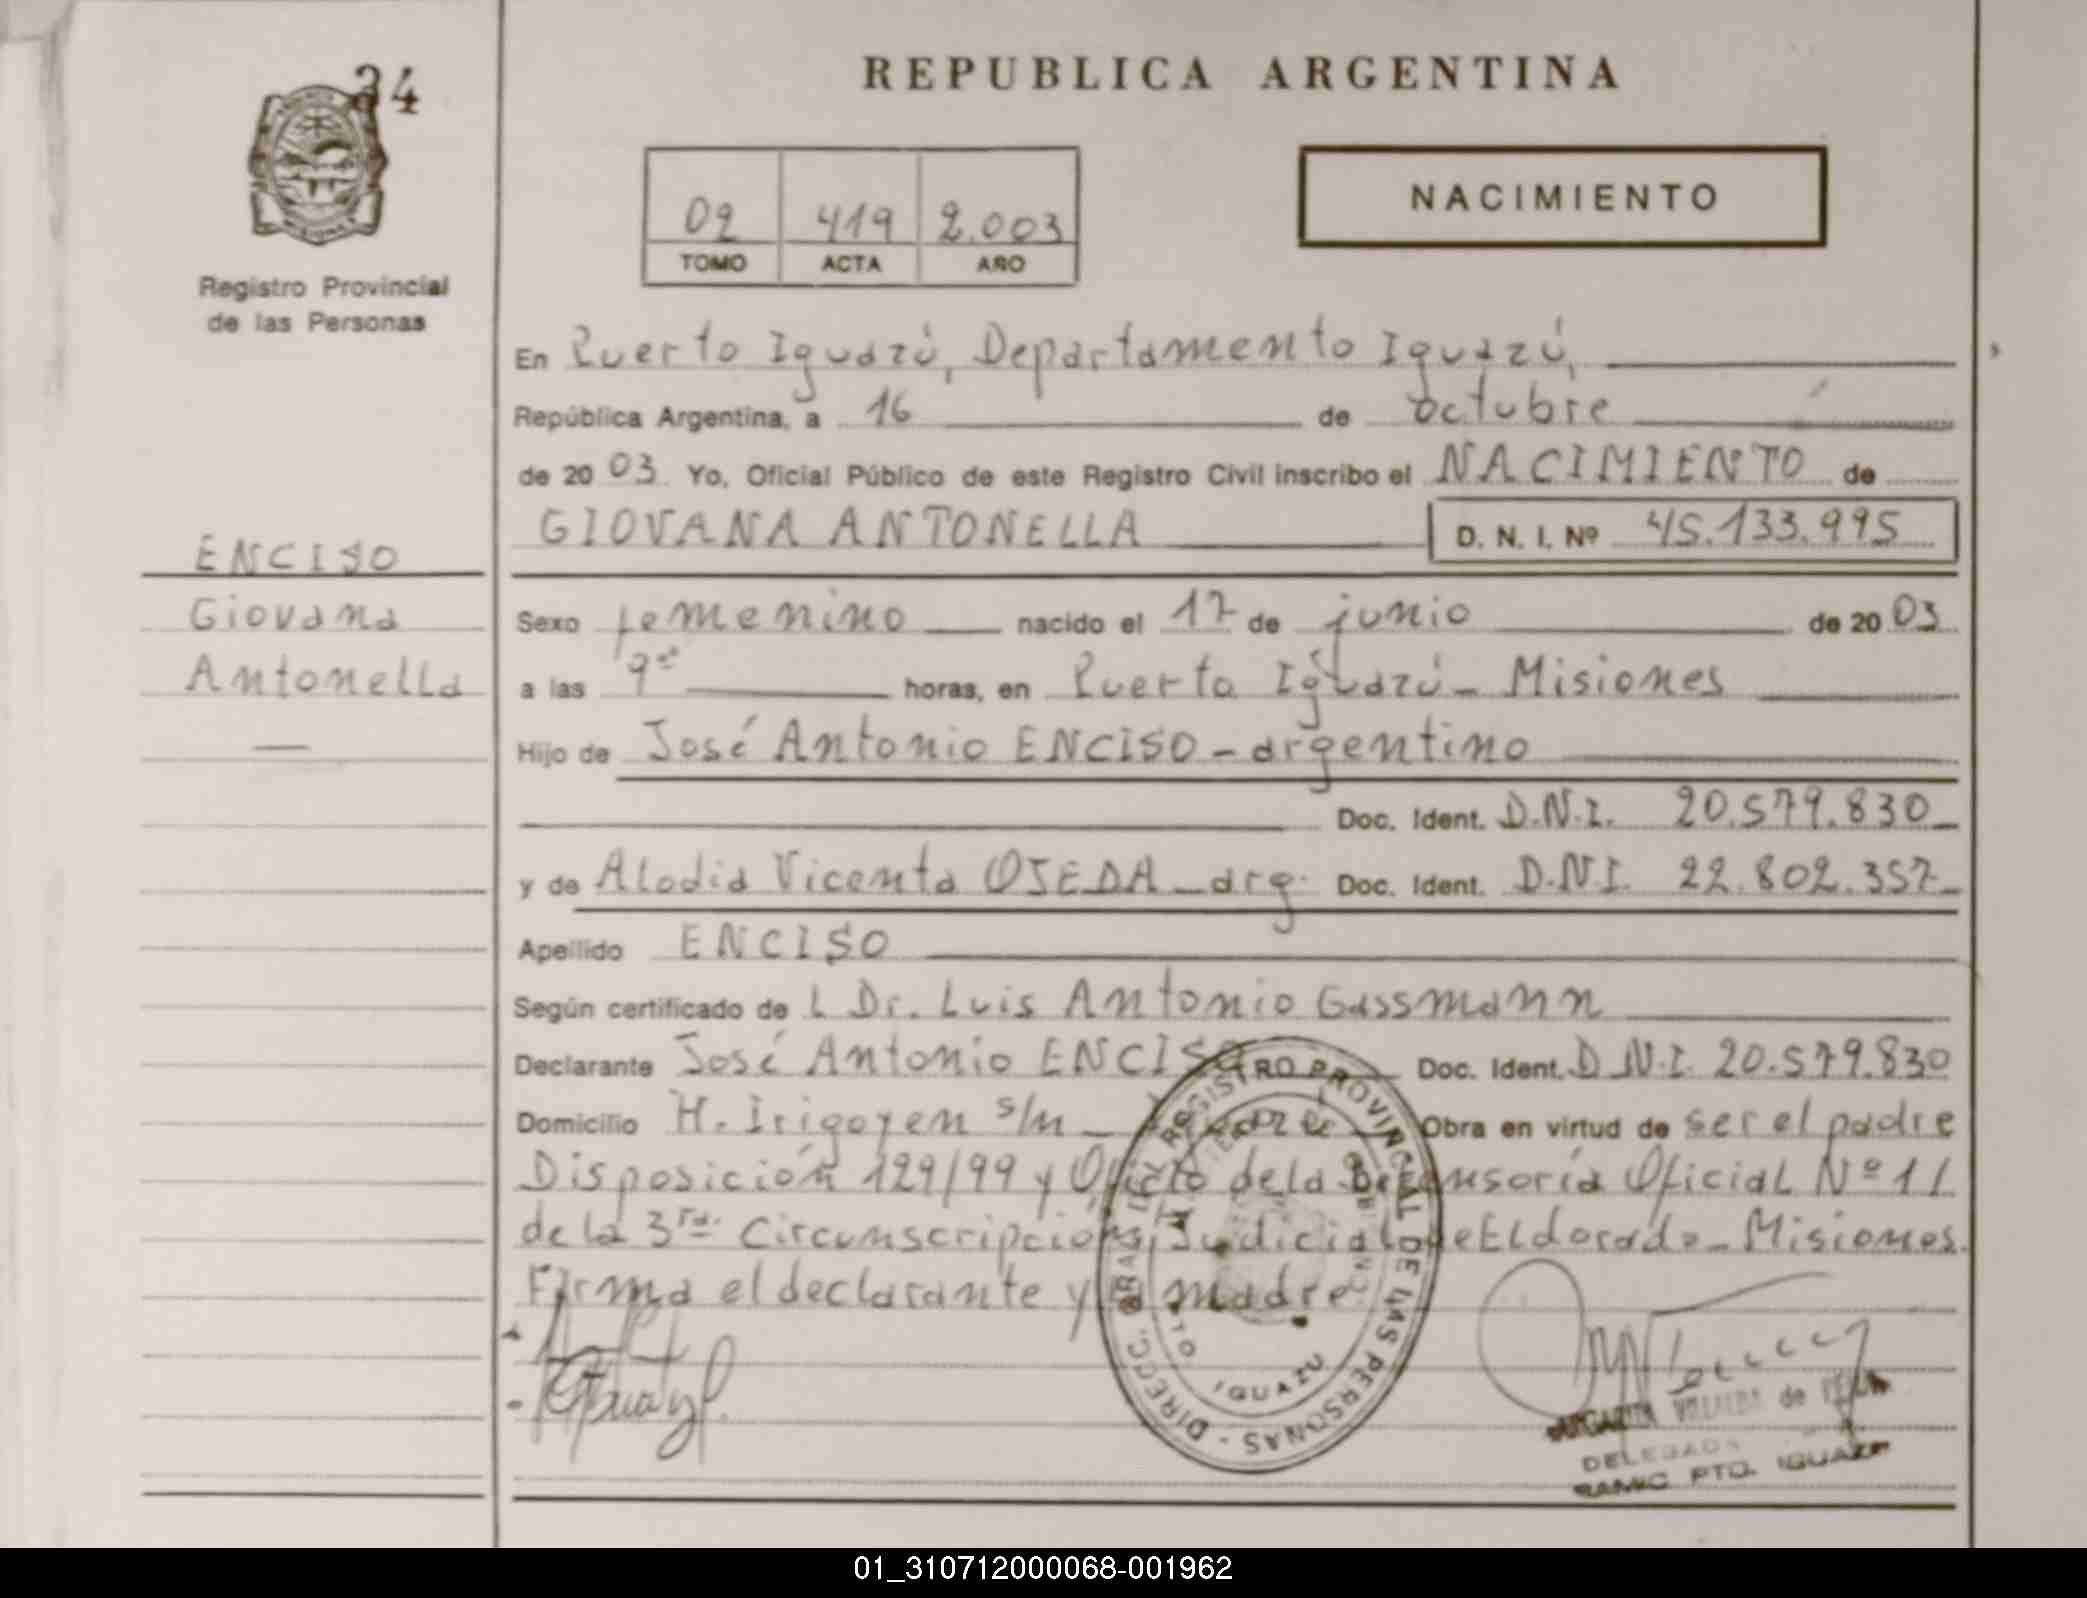 34
REPUBLICA ARGENTINA
NACIMIENTO
02 419 2.003
TOMO ACTA AÑO
Registro Provincial
de las Personas
En Puerto Iguazú, Departamento Iguazú,
República Argentina, a 16 de octubre
de 20 03 Yo, Oficial Público de este Registro Civil inscribo el NACIMIENTO de
GIOVANA ANTONELLA D. N. I. Nº 45.133.995
ENCISO
Giovana
Antonella
Sexo femenino nacido el 17 de junio de 20 03
a las 9 horas, en Puerto Iguazú - Misiones
Hijo de José Antonio ENCISO - argentino
Doc. Ident. D.N.I. 20.579.830
y de Alodia Vicenta OJEDA - arg. Doc. Ident. D.N.I. 22.802.357
Apellido ENCISO
Según certificado de L Dr. Luis Antonio Gassmann
Declarante José Antonio ENCISO Doc. Ident. D.N.I. 20.579.830
Domicilio H. Irigoyen s/n Obra en virtud de ser el padre
Disposición 129/99 y Oficio de la Defensoría Oficial Nº 1
de la 3ra. Circunscripción Judicial de Eldorado - Misiones.
Firma el declarante y la madre
REGISTRO PROVINCIAL DE LAS PERSONAS - DIRECC. GRAL DEL
PTO IGUAZU
VILLALBA de
DELEGADA
PTO. IGUAZU
01_310712000068-001962